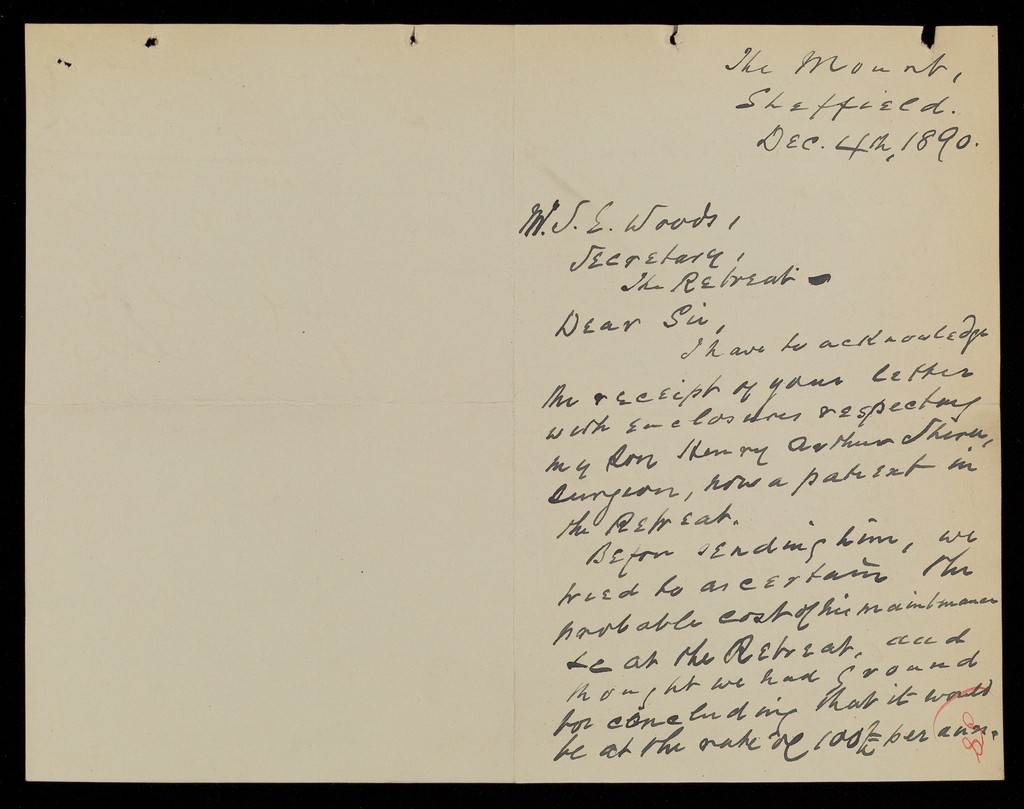 The Mount,
Sheffield.
Dec. 4th, 1890.
Mr. J. E. Woods,
Secretary,
The Retreat
Dear Sir,
I have to acknowledge
the receipt of your letter
with enclosures respecting
my son Henry Arthur
surgeon, now a patient in
the Retreat.
Before sending him, we
tried to ascertain the
probable cost of his maintenance
&c at the Retreat, and
thought we had ground
for concluding that it would
be at the rate of 100£ per ann.